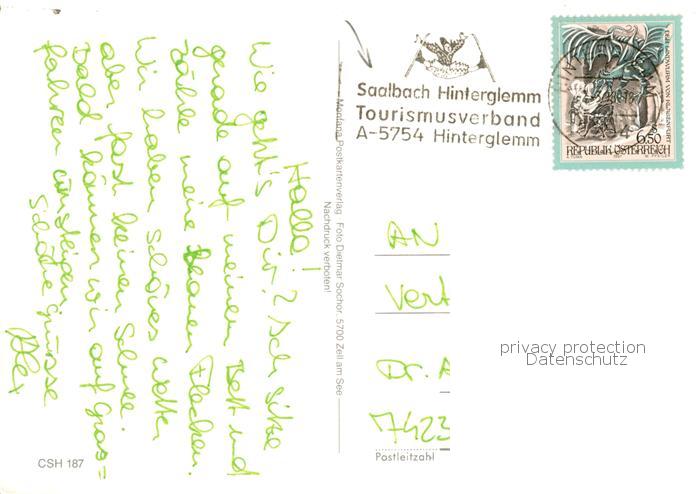 Hallo!
Wie geht's Dir? Ich sitze
gerade auf meinem Bett und
zähle meine blauen Flecken.
Wir haben schönes Wetter
aber fast keinen Schnee.
Bald können wir auf Gras=
fahren umsteigen.
Schöne Grüsse
Alex
CSH 187
Mondana Postkartenverlag Foto Dietmar Sochor, 5700 Zell am See
Nachdruck verboten!
Saalbach Hinterglemm
Tourismusverband
A-5754 Hinterglemm
DER LINDWURM VON KLAGENFURT
6.50
REPUBLIK ÖSTERREICH
1997
AN
Vert
Dr. A
7423
Postleitzahl
privacy protection
Datenschutz